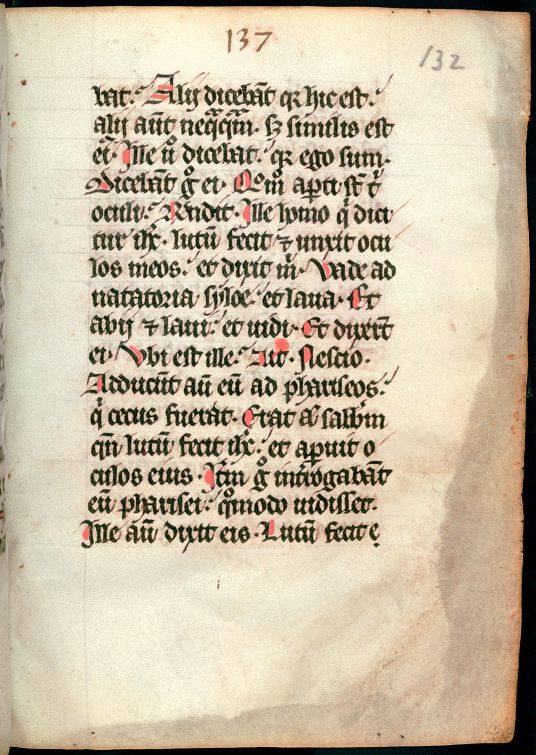 137
132
bat. Alij dicebāt qꝛ hic est.
alij aūt neq̄q̄m. sꝫ similis est
ei. Ille ū dicebat. qꝛ ego sum.
Dicebāt gͦ ei. Qͦm̄ apti sт̄ tͥ
oculi. Rn̄dit. Ille homo qͥ dici
tur ih̄c. lutū fecit ⁊ unxit ocu
los meos. et dixit m̄. Vade ad
natatoria syloe. et laua. Et
abij ⁊ laui. et uidi. Et dixer̄t
ei. Vbi est ille. Ait. Nescio.
Adducūt aū eū ad phariseos.
qͥ cecus fuerat. Erat aū sabb̄m
qn̄ lutū fecit ih̄c. et aperuit o
culos eius. Itm̄ gͦ int̄rogabāt
eū pharisei. qͦmodo uidisset.
Ille aū dixit eis. Lutū fecit ę